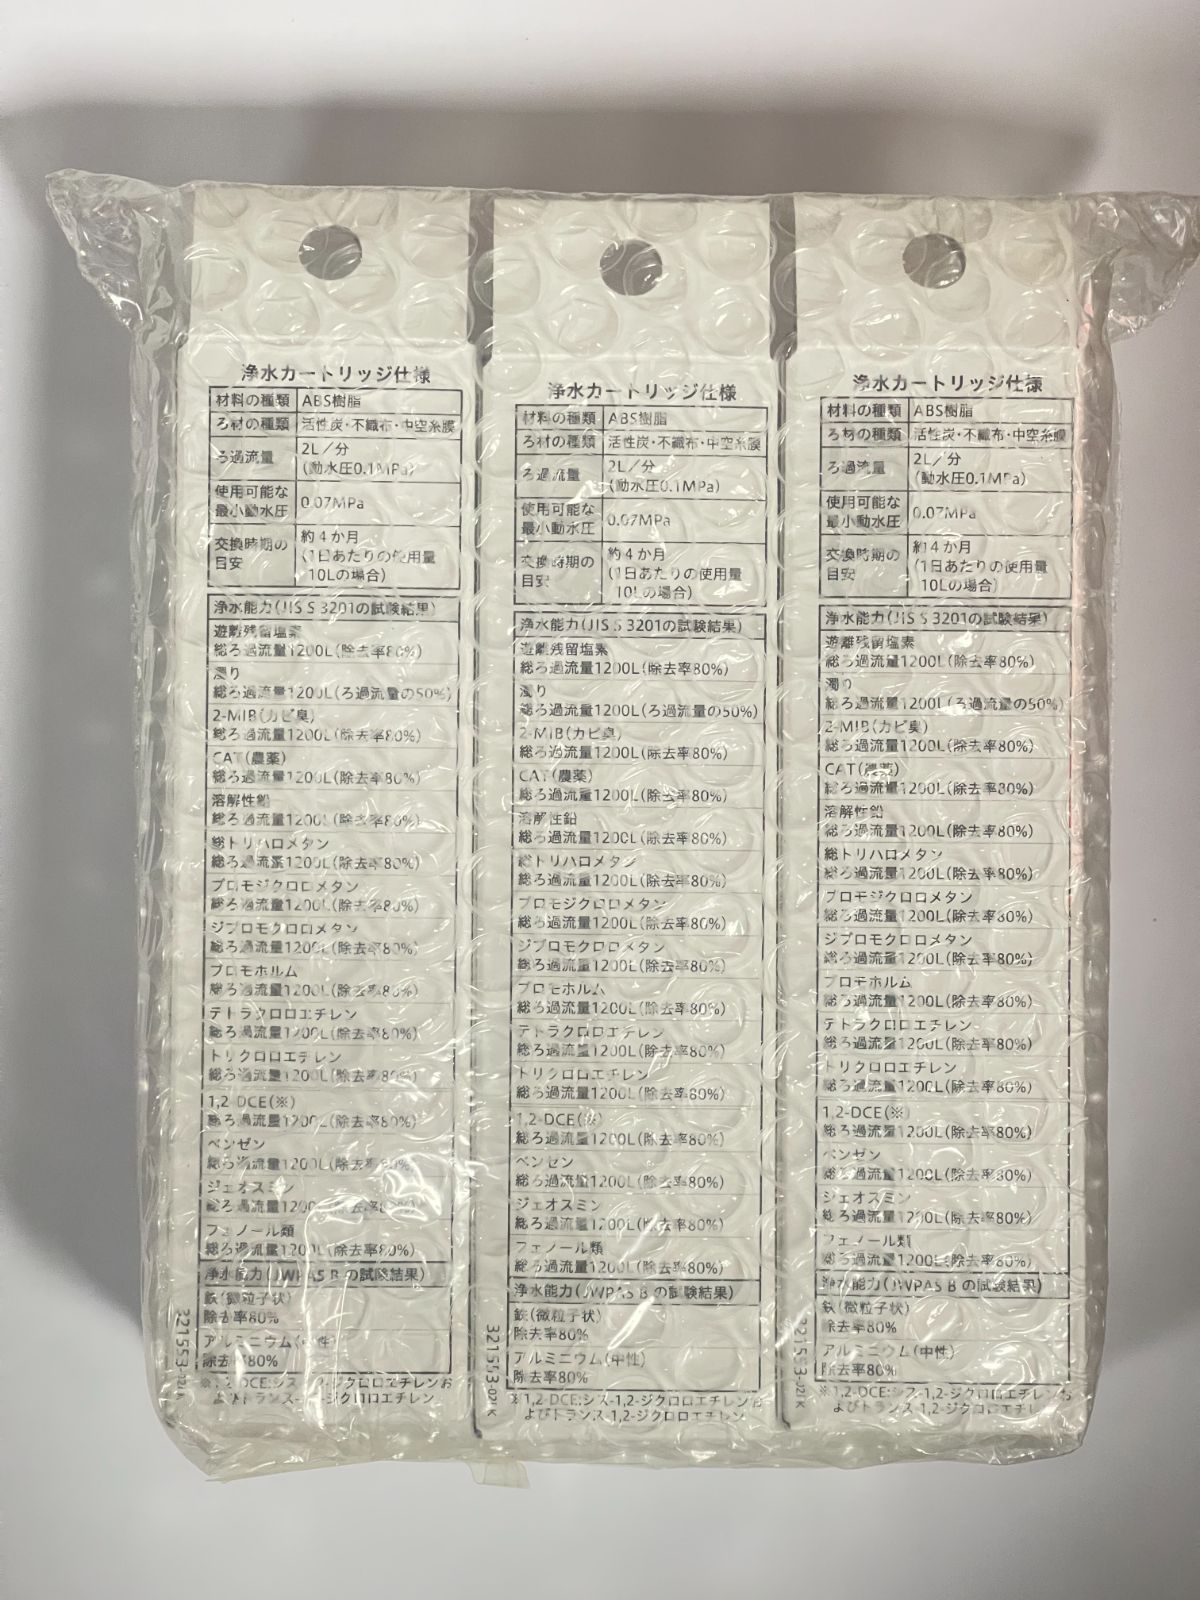 浄水カートリッジ仕様
材料の種類 ABS樹脂
ろ材の種類 活性炭・不織布・中空糸膜
ろ過流量 2L／分
(動水圧0.1MPa)
使用可能な
最小動水圧 0.07MPa
交換時期の
目安 約4か月
(1日あたりの使用量
10Lの場合)
浄水能力(JIS S 3201の試験結果)
遊離残留塩素
総ろ過流量1200L(除去率80%)
濁り
総ろ過流量1200L(ろ過流量の50%)
2-MIB(カビ臭)
総ろ過流量1200L(除去率80%)
CAT(農薬)
総ろ過流量1200L(除去率80%)
溶解性鉛
総ろ過流量1200L(除去率80%)
総トリハロメタン
総ろ過流量1200L(除去率80%)
ブロモジクロロメタン
総ろ過流量1200L(除去率80%)
ジブロモクロロメタン
総ろ過流量1200L(除去率80%)
ブロモホルム
総ろ過流量1200L(除去率80%)
テトラクロロエチレン
総ろ過流量1200L(除去率80%)
トリクロロエチレン
総ろ過流量1200L(除去率80%)
1,2-DCE(※)
総ろ過流量1200L(除去率80%)
ベンゼン
総ろ過流量1200L(除去率80%)
ジェオスミン
総ろ過流量1200L(除去率80%)
フェノール類
総ろ過流量1200L(除去率80%)
浄水能力(JWPAS B の試験結果)
鉄(微粒子状)
除去率80%
アルミニウム(中性)
除去率80%
※1,2-DCE:シス-1,2-ジクロロエチレンお
よびトランス-1,2-ジクロロエチレン
321553-02IK
浄水カートリッジ仕様
材料の種類 ABS樹脂
ろ材の種類 活性炭・不織布・中空糸膜
ろ過流量 2L／分
(動水圧0.1MPa)
使用可能な
最小動水圧 0.07MPa
交換時期の
目安 約4か月
(1日あたりの使用量
10Lの場合)
浄水能力(JIS S 3201の試験結果)
遊離残留塩素
総ろ過流量1200L(除去率80%)
濁り
総ろ過流量1200L(ろ過流量の50%)
2-MIB(カビ臭)
総ろ過流量1200L(除去率80%)
CAT(農薬)
総ろ過流量1200L(除去率80%)
溶解性鉛
総ろ過流量1200L(除去率80%)
総トリハロメタン
総ろ過流量1200L(除去率80%)
ブロモジクロロメタン
総ろ過流量1200L(除去率80%)
ジブロモクロロメタン
総ろ過流量1200L(除去率80%)
ブロモホルム
総ろ過流量1200L(除去率80%)
テトラクロロエチレン
総ろ過流量1200L(除去率80%)
トリクロロエチレン
総ろ過流量1200L(除去率80%)
1,2-DCE(※)
総ろ過流量1200L(除去率80%)
ベンゼン
総ろ過流量1200L(除去率80%)
ジェオスミン
総ろ過流量1200L(除去率80%)
フェノール類
総ろ過流量1200L(除去率80%)
浄水能力(JWPAS B の試験結果)
鉄(微粒子状)
除去率80%
アルミニウム(中性)
除去率80%
※1,2-DCE:シス-1,2-ジクロロエチレンお
よびトランス-1,2-ジクロロエチレン
321553-02IK
浄水カートリッジ仕様
材料の種類 ABS樹脂
ろ材の種類 活性炭・不織布・中空糸膜
ろ過流量 2L／分
(動水圧0.1MPa)
使用可能な
最小動水圧 0.07MPa
交換時期の
目安 約4か月
(1日あたりの使用量
10Lの場合)
浄水能力(JIS S 3201の試験結果)
遊離残留塩素
総ろ過流量1200L(除去率80%)
濁り
総ろ過流量1200L(ろ過流量の50%)
2-MIB(カビ臭)
総ろ過流量1200L(除去率80%)
CAT(農薬)
総ろ過流量1200L(除去率80%)
溶解性鉛
総ろ過流量1200L(除去率80%)
総トリハロメタン
総ろ過流量1200L(除去率80%)
ブロモジクロロメタン
総ろ過流量1200L(除去率80%)
ジブロモクロロメタン
総ろ過流量1200L(除去率80%)
ブロモホルム
総ろ過流量1200L(除去率80%)
テトラクロロエチレン
総ろ過流量1200L(除去率80%)
トリクロロエチレン
総ろ過流量1200L(除去率80%)
1,2-DCE(※)
総ろ過流量1200L(除去率80%)
ベンゼン
総ろ過流量1200L(除去率80%)
ジェオスミン
総ろ過流量1200L(除去率80%)
フェノール類
総ろ過流量1200L(除去率80%)
浄水能力(JWPAS B の試験結果)
鉄(微粒子状)
除去率80%
アルミニウム(中性)
除去率80%
※1,2-DCE:シス-1,2-ジクロロエチレンお
よびトランス-1,2-ジクロロエチレン
321553-02IK